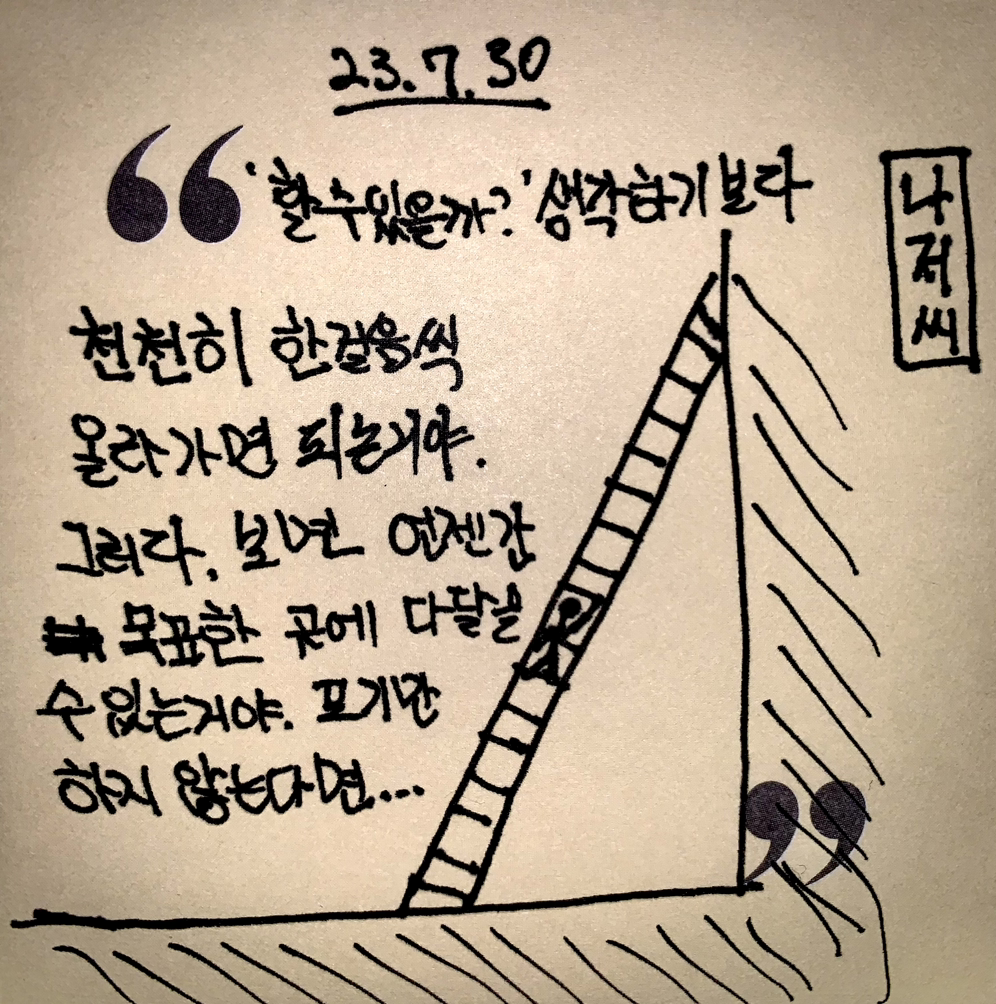 23.7.30
'할수있을까?' 생각하기보다
나저씨
천천히 한걸음씩
올라가면 되는거야.
그러다. 보면 언젠간
목표한 곳에 다달을
수있는거야. 포기만
하지 않는다면...